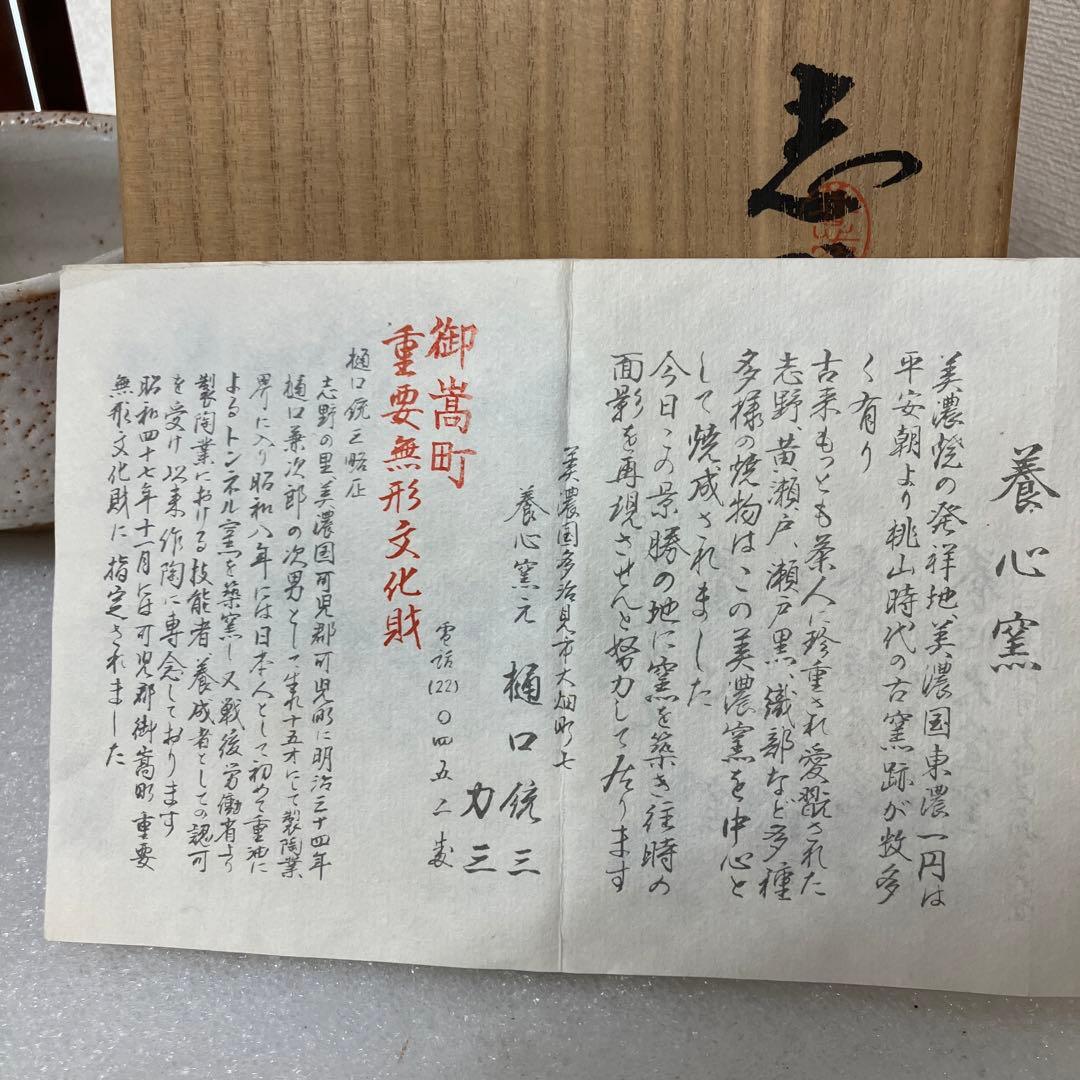 志
養心窯
美濃焼の発祥地、美濃国東濃一円は
平安朝より桃山時代の古窯跡が数多
く有り
古来もっとも茶人に珍重され愛翫された
志野、黄瀬戸、瀬戸黒、織部など多種
多様の焼物は、この美濃窯を中心と
して焼成されました
今日、この景勝の地に窯を築き往時の
面影を再現させんと努力して居ります
美濃国多治見市大畑町七
養心窯元 樋口鋶三
力三
電話(22)〇四五二
御嵩町
重要無形文化財
樋口鋶三略歴
志野の里、美濃国可児郡可児町に明治三十四年
樋口兼次郎の次男として生れ十五才にして製陶業
界に入り昭和八年には日本人として初めて重油に
よるトンネル窯を築窯し又戦後労働省より
製陶業における技能者、養成者としての認可
を受け以来作陶に専念しております
昭和四十七年十一月には可児郡御嵩町重要
無形文化財に指定されました